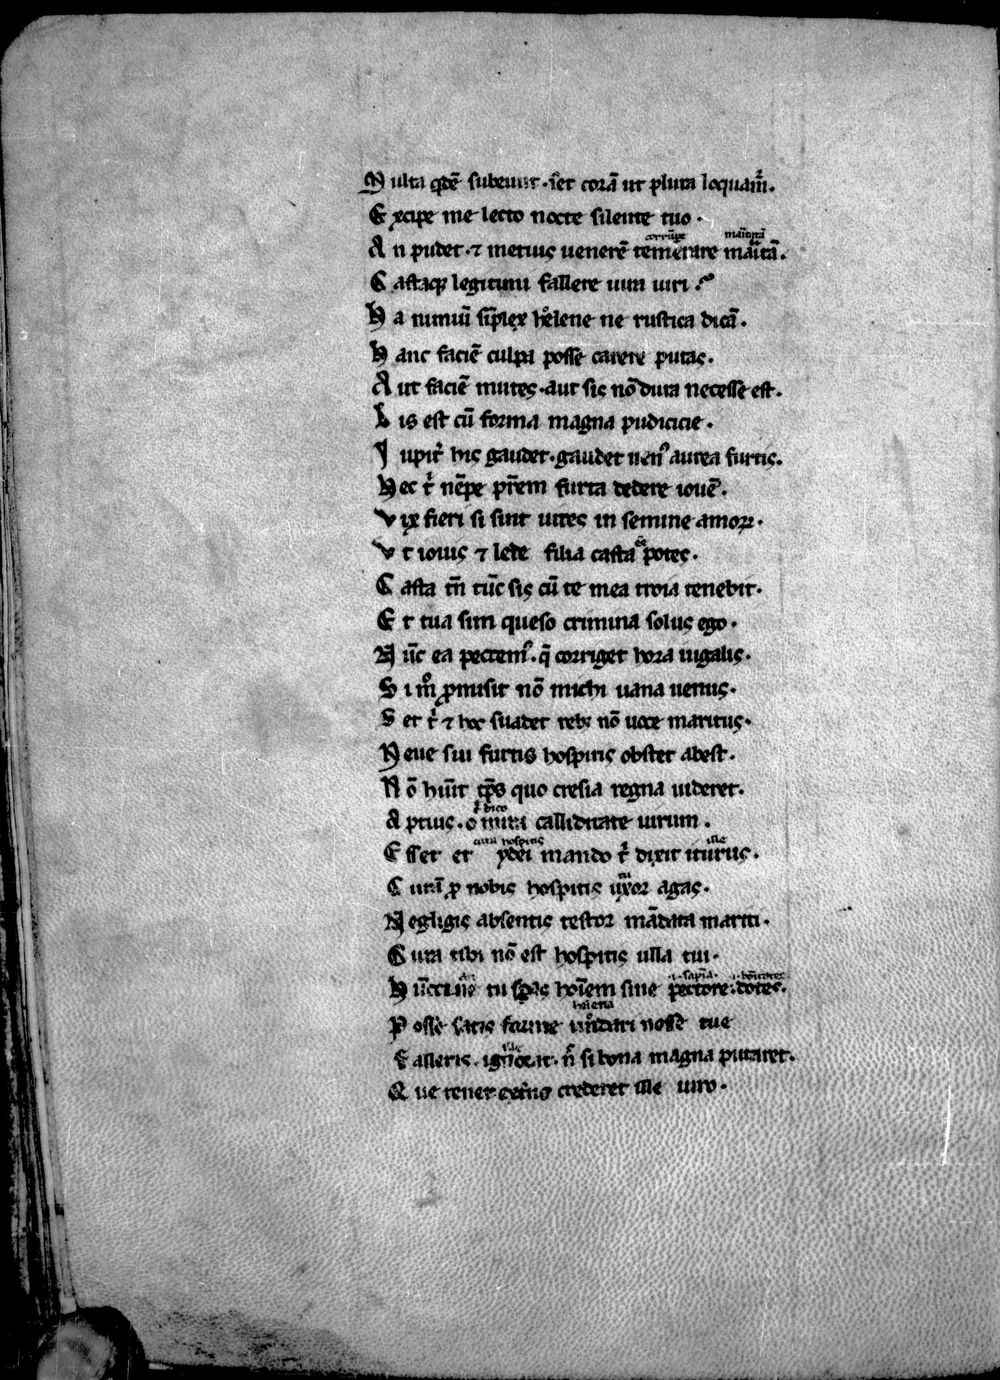 Multa qdē subeunt · s̄et corā ut plura loquam̄.
Excipe me lecto nocte silente tuo ·
An pudet · ⁊ metuis uenerē temerare maritā.
corrūpe maritatā
Castaqꝫ legitimi fallere iura uiri ·
Ha nimiū simplex helene ne rustica dicā.
Hanc faciē culpa posse carere putas.
Aut faciē mutes · aut sis nō dura necesse est.
Lis est cū forma magna pudicicie.
Iupit̄ his gaudet · gaudet uenꝰ aurea furtis.
Hec t̄ nēpe pr̄em furta dedere iouē.
Vix fieri si sint uires in semine amoꝝ ·
Vt iouis ⁊ lede filia casta potes.
Casta tn̄ tūc sis cū te mea troia tenebit.
Et tua sim queso crimina solus ego ·
Nūc ea peccemꝰ · q̄ corriget hora iugalis.
Si m° ꝓmisit nō michi uana uenus.
Set t̄ ⁊ hoc suadet rebꝫ nō uoce maritus.
Neue sui furtis hospitis obstet abest.
Nō hūit tp̄s quo cresia regna uideret.
Aptius · o mira calliditate uirum.
dico
Esset et ydei mando t̄ dixit iturus.
cura hospitis ille
Curā ꝓ nobis hospitis uxor agas.
tu
Negligis absentis testor mādata mariti.
Cura tibi nō est hospitis ulla tui.
Hūccine tu spas hoīem sine pectore · dotes.
.i. sapīa. .i. bonitates
Posse satis forme tindari nosse tue
helena
Falleris · ignorat · n̄ si bona magna putaret.
Que tenet · exteno crederet ille uiro ·